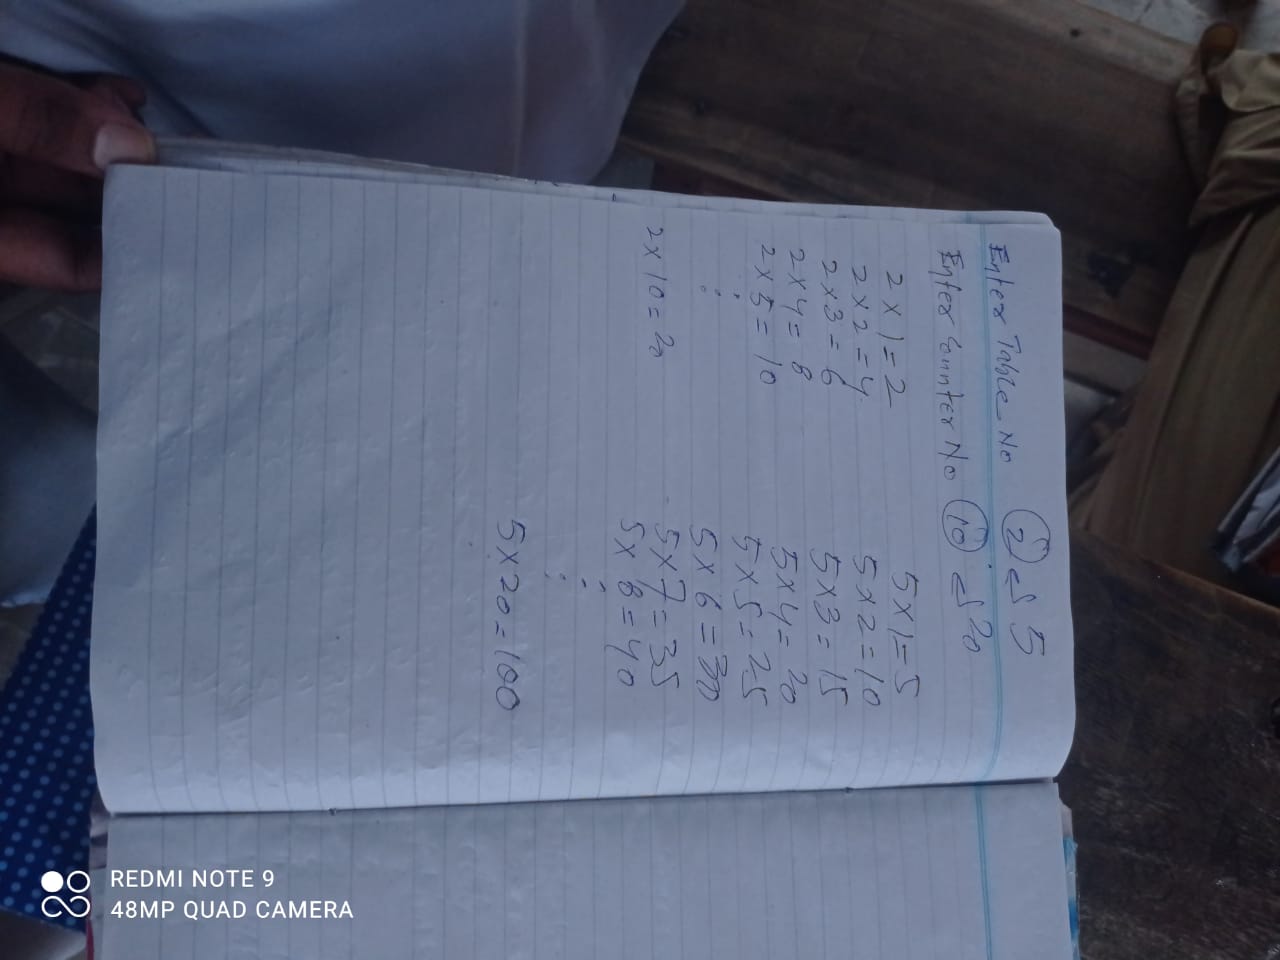 Enter Table No (2) 5
Enter Counter No (10) 20
2 x 1 = 2
2 x 2 = 4
2 x 3 = 6
2 x 4 = 8
2 x 5 = 10
:
2 x 10 = 20
5 x 1 = 5
5 x 2 = 10
5 x 3 = 15
5 x 4 = 20
5 x 5 = 25
5 x 6 = 30
5 x 7 = 35
5 x 8 = 40
:
5 x 20 = 100
REDMI NOTE 9
48MP QUAD CAMERA